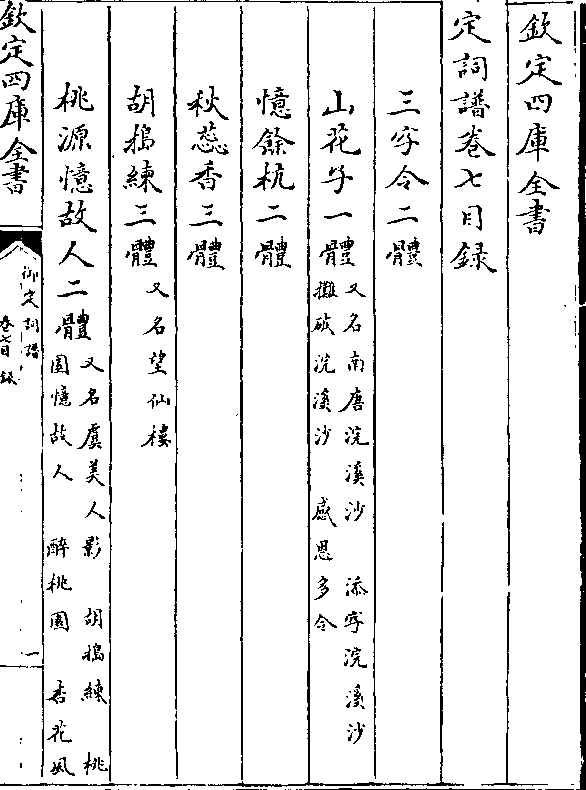 欽定四庫全書
定詞譜卷七目録
三字令二體
山花子一體 又名南唐浣溪沙 添字浣溪沙
攤破浣溪沙 感恩多令
憶餘杭二體
秋蕊香三體
胡搗練三體 又名望仙樓
桃源憶故人二體 又名虞美人影 胡搗練 桃
園憶故人 醉桃園 杏花風
欽定四庫全書
御定詞譜
卷七目録
一